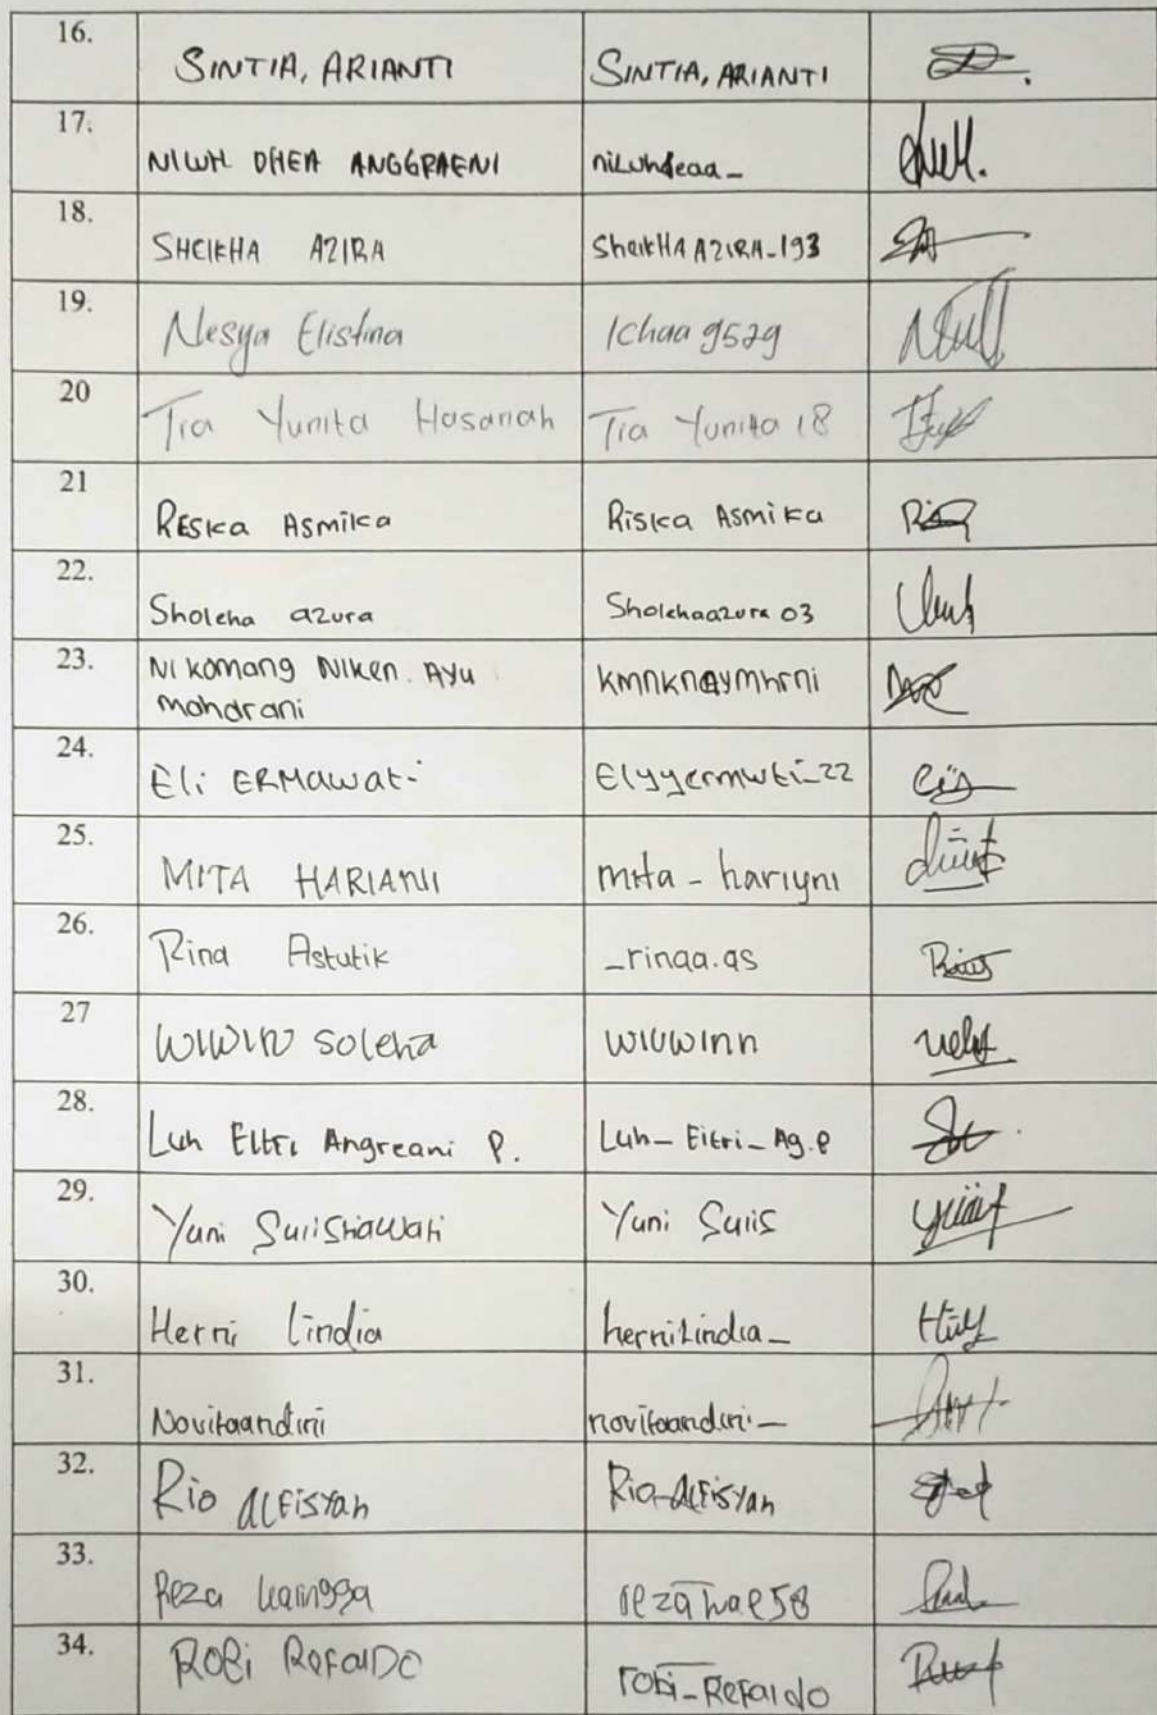 16. SINTIA, ARIANTI SINTIA, ARIANTI
17. NILUH DHEA ANGGRAENI niluhdeaa_
18. SHEIKHA AZIRA SheikHA AZIRA_193
19. Nesya Elistina Ichaa 9529
20 Tia Yunita Hasanah Tia Yunita 18
21 RESKa ASmika Riska Asmika
22. Sholeha azura Sholehaazura 03
23. Ni komang Niken. Ayu kmnknaymhrni
Mahdrani
24. Eli ERMawati Elyyermwti_22
25. MITA HARIANI mita - hariyni
26. Rina Astutik _rinaa.as
27 WIWIN Soleha wiuwinn
28. Luh Eitri Angreani P. Luh_ Eitri_ Ag.p
29. Yuni Sulistiawati Yuni Sulis
30. Herni lindia hernilindia_
31. Novitaandini novitaandini_
32. Rio ALFisyah Rio_ALFisyah
33. Reza
34. ROBi ReFalDO robi_ReFaldo